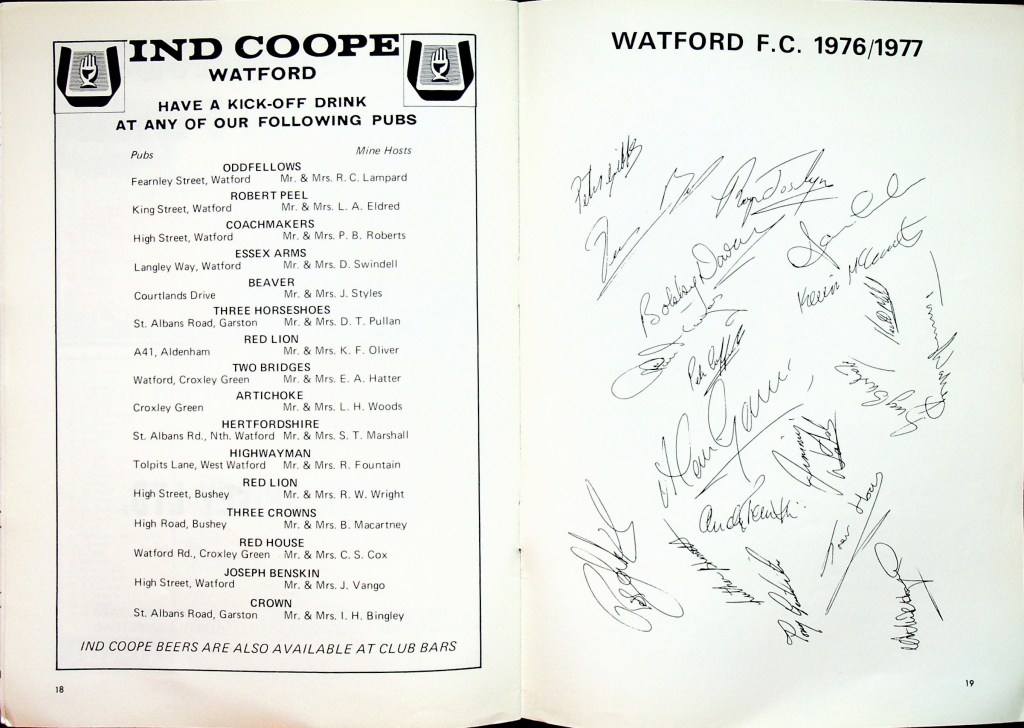 IND COOPE
WATFORD
HAVE A KICK-OFF DRINK
AT ANY OF OUR FOLLOWING PUBS
Pubs Mine Hosts
ODDFELLOWS
Fearnley Street, Watford Mr. & Mrs. R. C. Lampard
ROBERT PEEL
King Street, Watford Mr. & Mrs. L. A. Eldred
COACHMAKERS
High Street, Watford Mr. & Mrs. P. B. Roberts
ESSEX ARMS
Langley Way, Watford Mr. & Mrs. D. Swindell
BEAVER
Courtlands Drive Mr. & Mrs. J. Styles
THREE HORSESHOES
St. Albans Road, Garston Mr. & Mrs. D. T. Pullan
RED LION
A41, Aldenham Mr. & Mrs. K. F. Oliver
TWO BRIDGES
Watford, Croxley Green Mr. & Mrs. E. A. Hatter
ARTICHOKE
Croxley Green Mr. & Mrs. L. H. Woods
HERTFORDSHIRE
St. Albans Rd., Nth. Watford Mr. & Mrs. S. T. Marshall
HIGHWAYMAN
Tolpits Lane, West Watford Mr. & Mrs. R. Fountain
RED LION
High Street, Bushey Mr. & Mrs. R. W. Wright
THREE CROWNS
High Road, Bushey Mr. & Mrs. B. Macartney
RED HOUSE
Watford Rd., Croxley Green Mr. & Mrs. C. S. Cox
JOSEPH BENSKIN
High Street, Watford Mr. & Mrs. J. Vango
CROWN
St. Albans Road, Garston Mr. & Mrs. I. H. Bingley
IND COOPE BEERS ARE ALSO AVAILABLE AT CLUB BARS
18
WATFORD F.C. 1976/1977
Roger Joslyn
Bobby
Kevin
Alan Garner
Andy
19